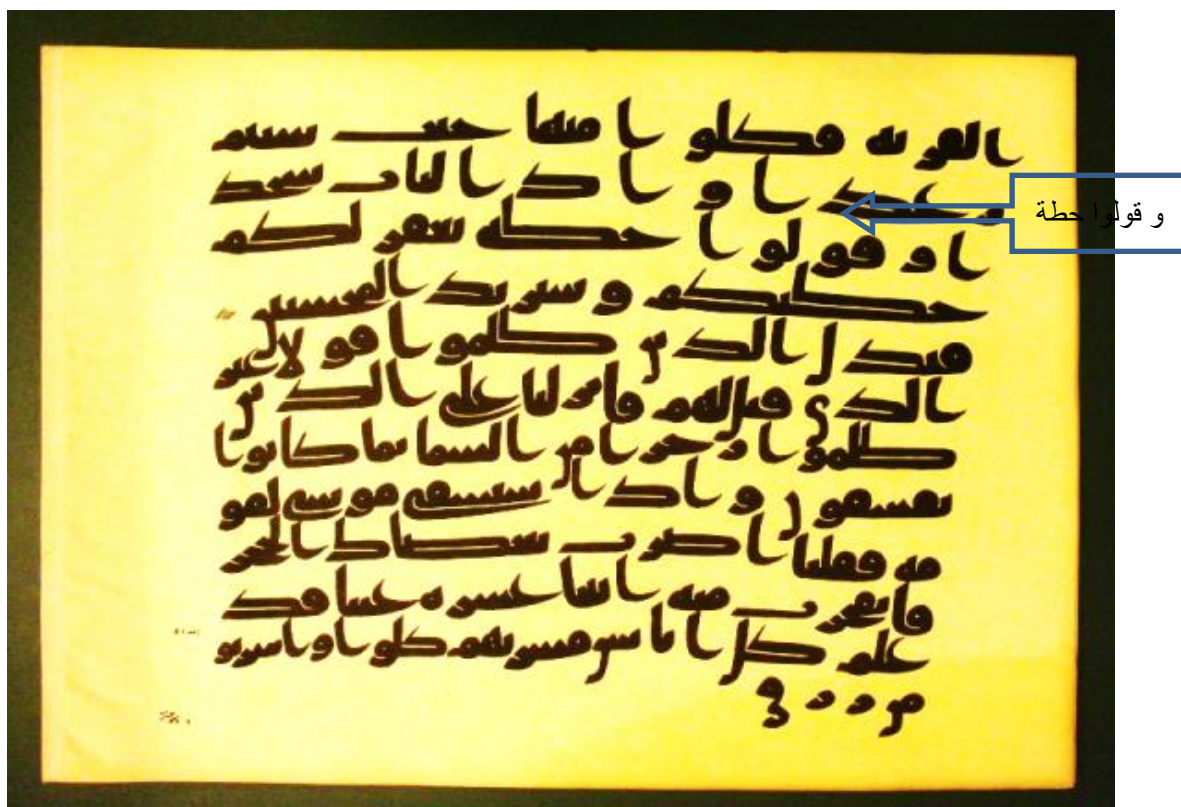 القرية فكلوا منها حيث شيتم
رغدا واد الباب سجد
ا وقولوا حطة نغفر لكم
خطيكم وسنزيد المحسنين
فبدل الذين ظلموا قولا غير
الذي قيل لهم فانزلنا على الذين
ظلموا رجزا من السما بما كانوا
يفسقون واذ استسقى موسى لقو
مه فقلنا اضرب بعصاك الحجر
فانفجرت منه اثنتا عشرة عينا قد
علم كل اناس مشربهم كلوا واشربو
من رزق
و قولوا حطة